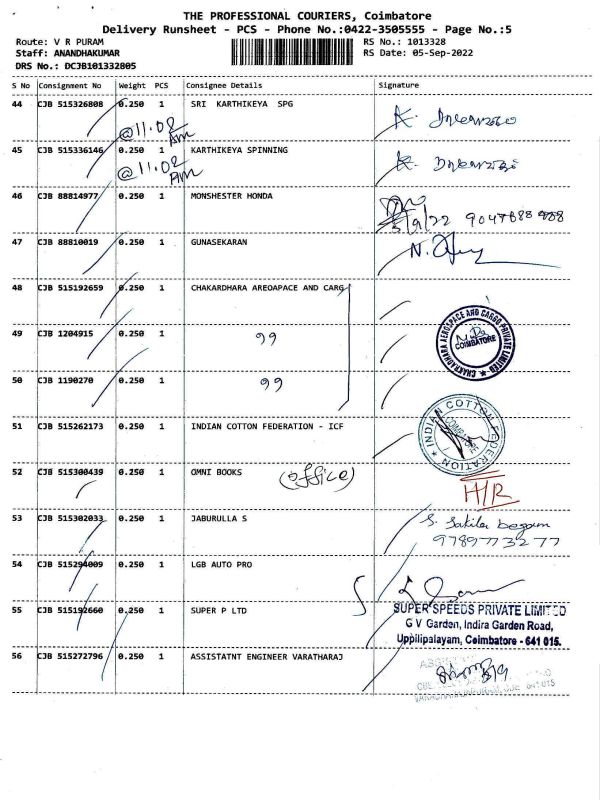 THE PROFESSIONAL COURIERS, Coimbatore
Delivery Runsheet - PCS - Phone No.:0422-3505555 - Page No.:5
Route: V R PURAM RS No.: 1013328
Staff: ANANDHAKUMAR RS Date: 05-Sep-2022
DRS No.: DCJB101332805
S No Consignment No Weight PCS Consignee Details Signature
44 CJB 515326808 0.250 1 SRI KARTHIKEYA SPG
@11.02 AM
45 CJB 515336146 0.250 1 KARTHIKEYA SPINNING
@11.02 AM
46 CJB 88814977 0.250 1 MONSHESTER HONDA
47 CJB 88810019 0.250 1 GUNASEKARAN
48 CJB 515192659 0.250 1 CHAKARDHARA AREOAPACE AND CARG
49 CJB 1204915 0.250 1 99
CHAKRADHARA AEROSPACE AND CARGO PRIVATE LIMITED
COIMBATORE
50 CJB 1190270 0.250 1 99
51 CJB 515262173 0.250 1 INDIAN COTTON FEDERATION - ICF
INDIAN COTTON FEDERATION
52 CJB 515300439 0.250 1 OMNI BOOKS (office) H/R
53 CJB 515302033 0.250 1 JABURULLA S S. Sakila begam
9789773277
54 CJB 515294009 0.250 1 LGB AUTO PRO
55 CJB 515192660 0.250 1 SUPER P LTD SUPER SPEEDS PRIVATE LIMITED
G V Garden, Indira Garden Road,
Uppilipalayam, Coimbatore - 641 015.
56 CJB 515272796 0.250 1 ASSISTATNT ENGINEER VARATHARAJ